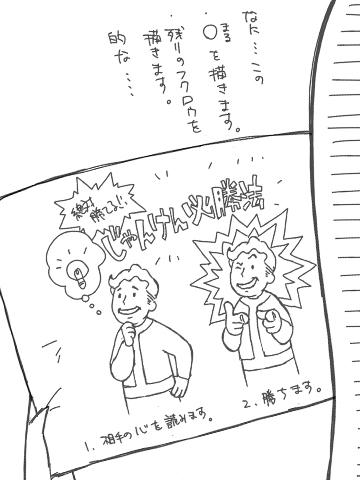 なに…この
・○を描きます。
まる
・残りのフクロウを
描きます。
的な……
絶対
勝てる!!
じゃんけん必勝法
1、相手の心を読みます。
2、勝ちます。